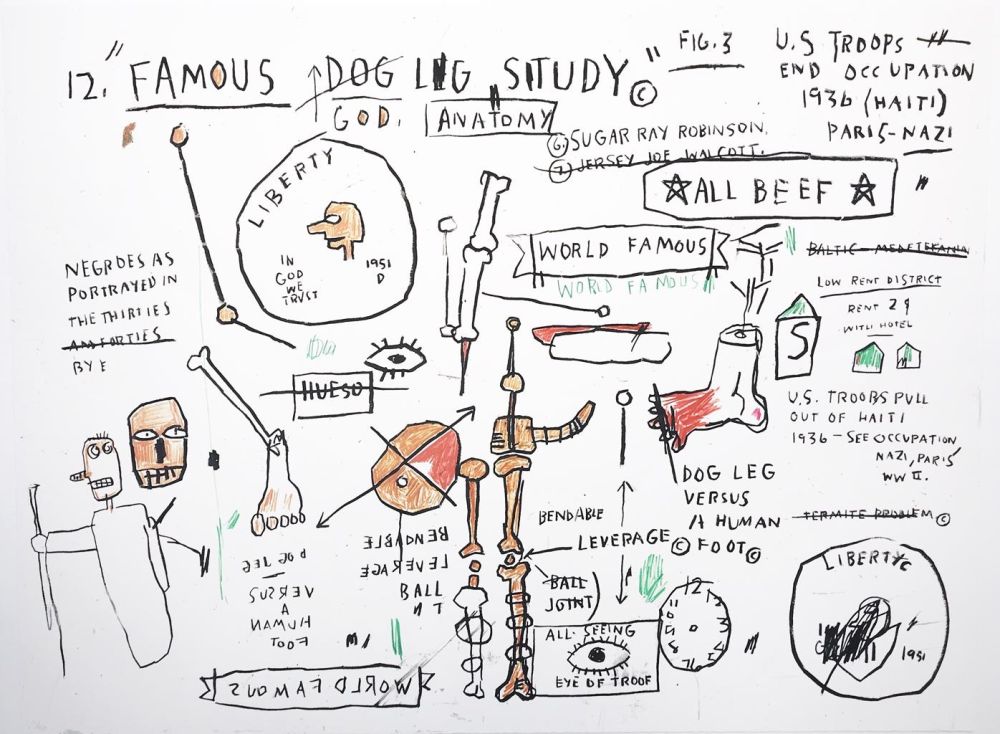 12. "FAMOUS DOG LEG STUDY" ©
GOD.
ANATOMY
FIG.3
U.S TROOPS
END OCCUPATION
1936 (HAITI)
PARIS-NAZI
6. SUGAR RAY ROBINSON.
7. JERSEY JOE WALCOTT.
ALL BEEF
WORLD FAMOUS
WORLD FAMOUS
LIBERTY
IN
GOD
WE
TRVST
1951
D
NEGROES AS
PORTRAYED IN
THE THIRTIES
AN FORTIES
BY E
HUESO
LOW RENT DISTRICT
RENT 2
HOTEL
S
U.S. TROOBS PULL
OUT OF HAITI
1936 - SEE OCCUPATION
NAZI, PARIS
WW II.
TERMITE PROBLEM ©
DOG LEG
VERSUS
A HUMAN
© FOOT ©
BENDABLE
LEVERAGE
BALL
JOINT)
BENDABLE
LEVERAGE
BALL
DOG LEG
VERSUS
A
HUMAN
FOOT
WORLD FAMOUS
ALL-SEEING
EYE OF TROOF
12
LIBERTY
1951